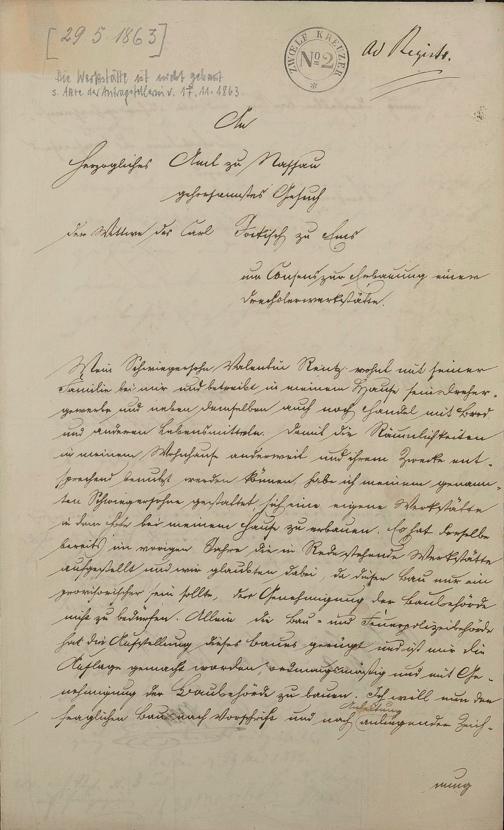 [29 5 1863]
ZWOELF KREUZER
No 2
ad Registr.
Die Werkstätte ist nicht gebaut
s. Akte der Antragstellerin v. 17.11.1863
An
Herzogliches Amt zu Nassau
gehorsamstes Gesuch
der Wittwe des Carl Fockisch zu Ems
um Consens zur Erbauung einer
Drechslerwerkstätte.
Mein Schwiegersohn Valentin Rentz wohnt mit seiner
Familie bei mir und betreibt in meinem Hause sein Dreher-
gewerbe und neben demselben auch noch Handel mit Brod
und anderen Lebensmitteln. Damit die Räumlichkeiten
in meinem Wohnhause anderweit und ihrem Zwecke ent-
sprechend benutzt werden können, habe ich meinem genann-
ten Schwiegersohne gestattet sich eine eigene Werkstätte
in dem Hofe bei meinem Hause zu erbauen. Er hat derselbe
bereits im vorigen Jahre die in Rede stehende Werkstätte
aufgestellt und wir glaubten dabei, da dieser Bau nur ein
provisorischer sein sollte, der Genehmigung der Baubehörde
nicht zu bedürfen. Allein die Bau- und Feuerpolizeibehörde
hat die Aufstellung dieses Baues gerügt und ist mir die
Auflage gemacht worden ordnungsmäßig und mit Ge-
nehmigung der Baubehörde zu bauen. Ich will nun den
fraglichen Bau nach Vorschrift und nach anliegender Zeich-
nung